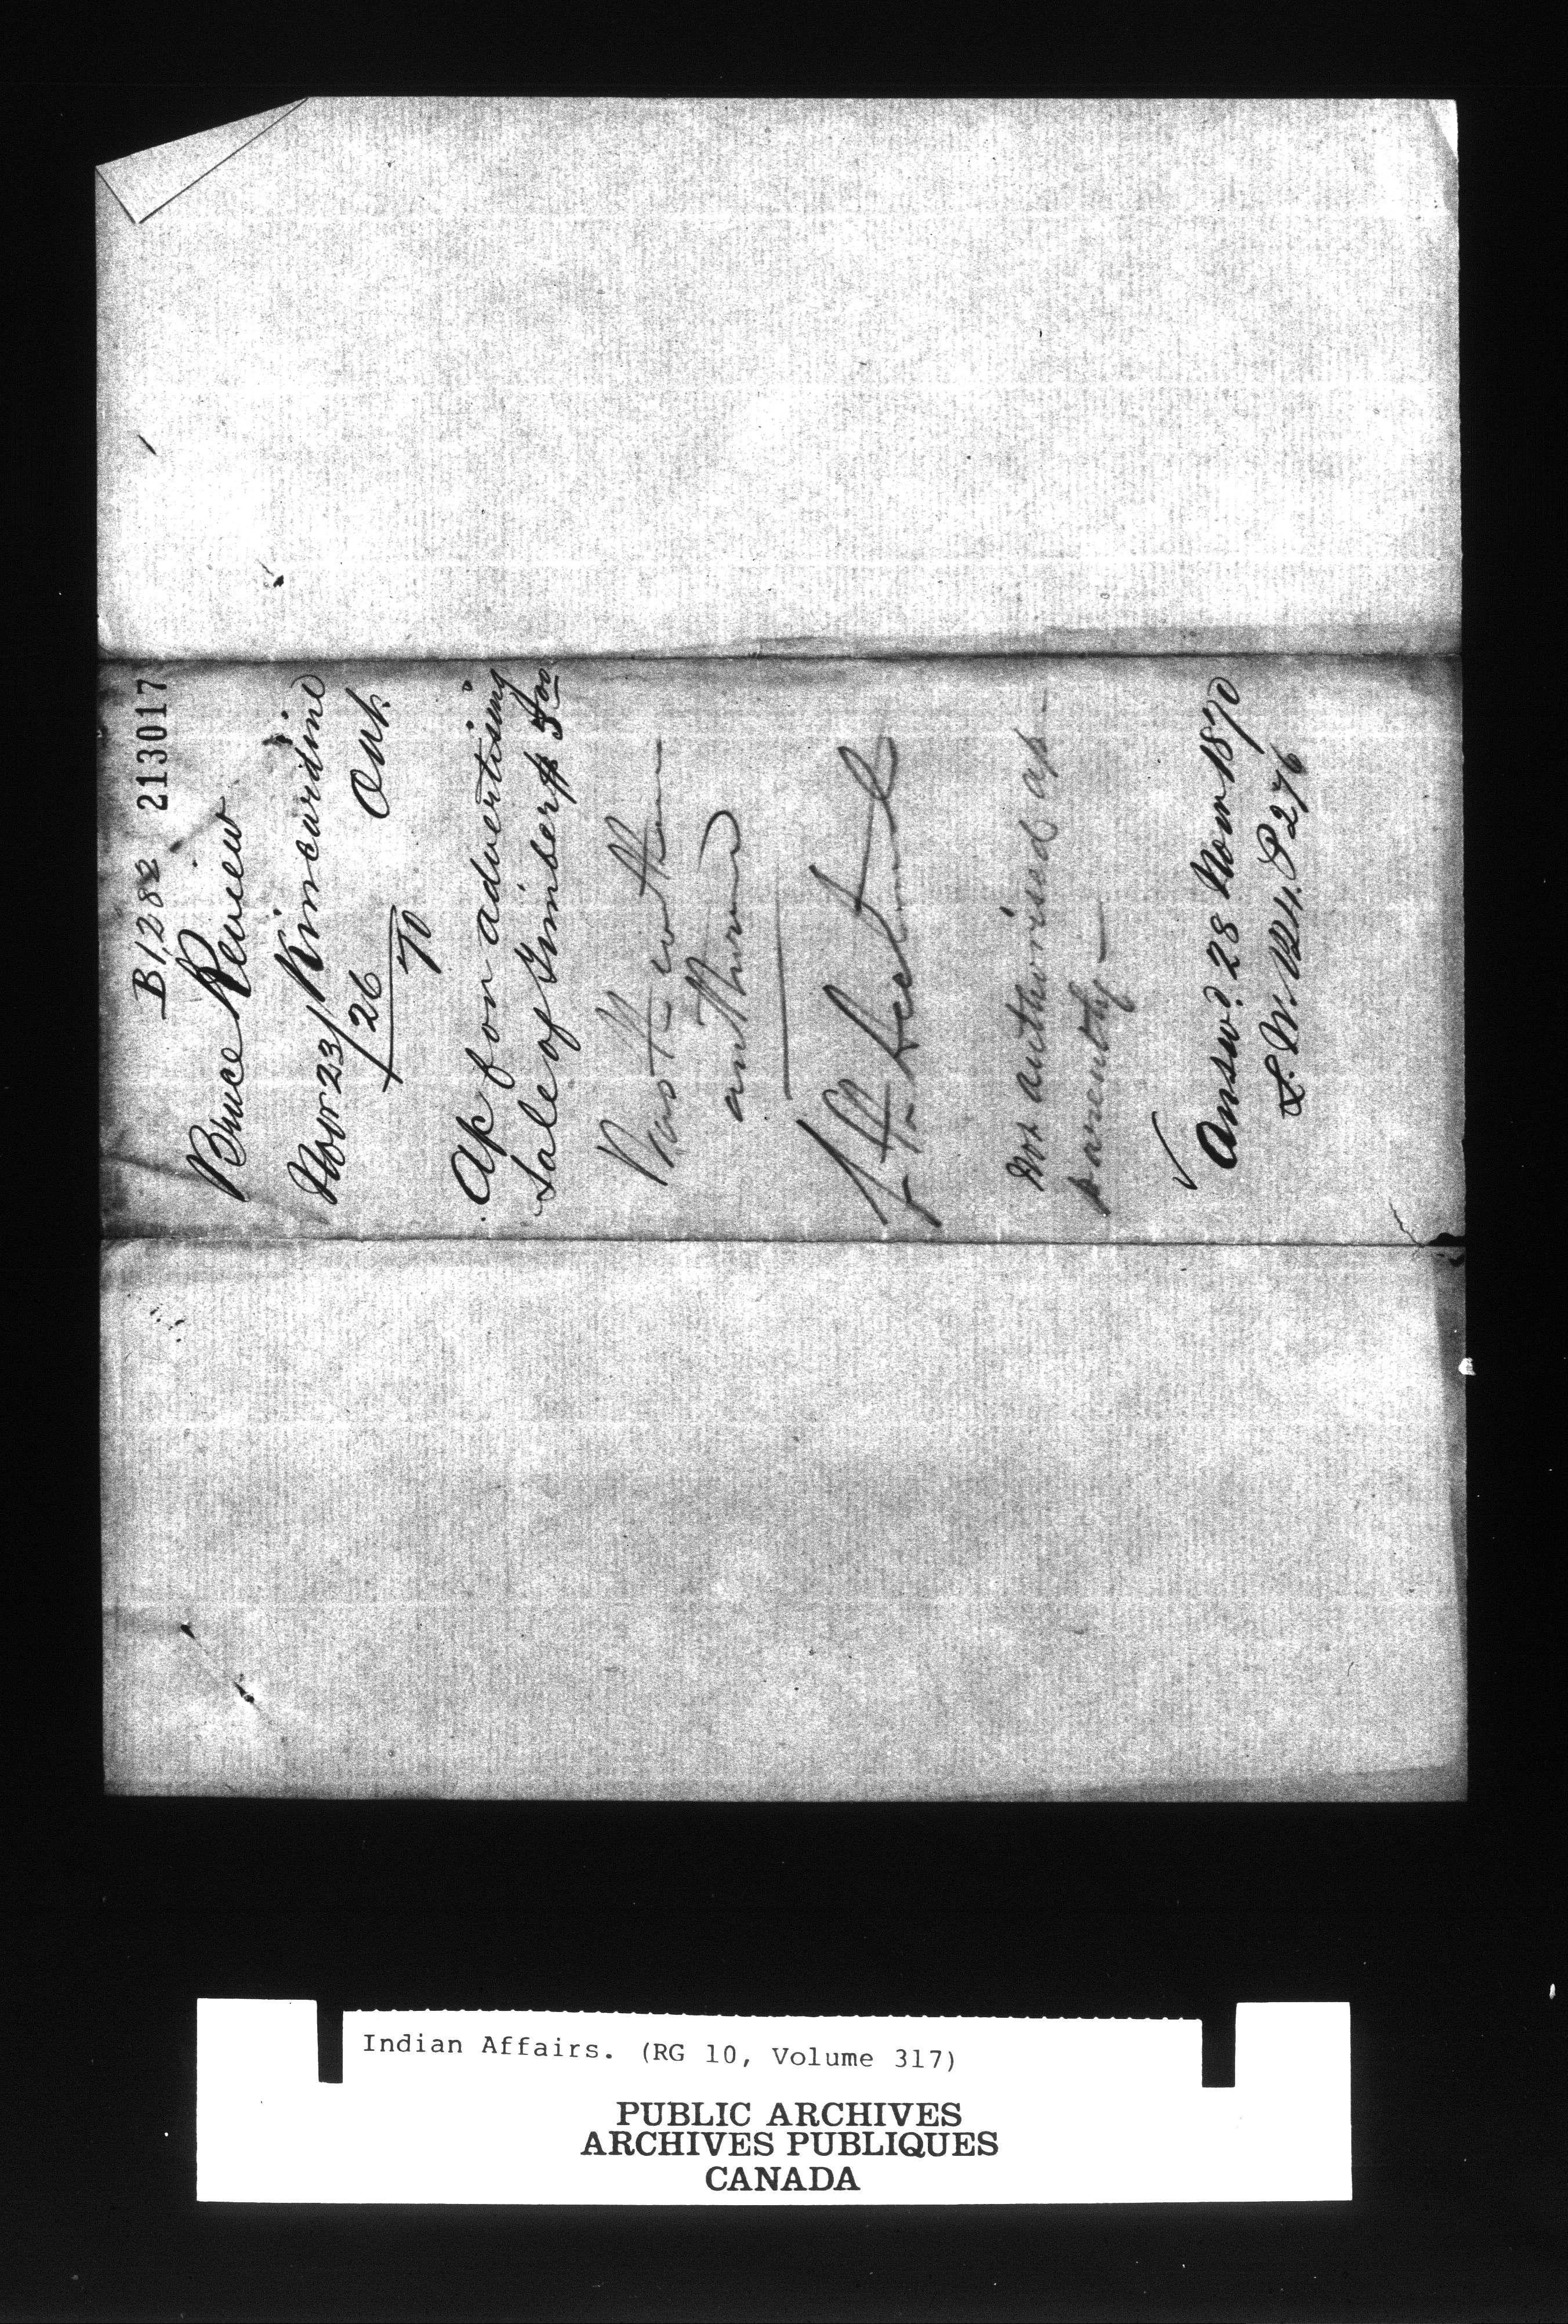 B1282 213017
Bruce Review
Novr 23/ Kincardine
26/70 Ont.
Ap for advertising
Sale of Timber $ 5.00
Was it
authorised
Not authorised ap-
parently —
✓ Answd. 28 Novr 1870
L. No. 1241. P 276
Indian Affairs. (RG 10, Volume 317)
PUBLIC ARCHIVES
ARCHIVES PUBLIQUES
CANADA